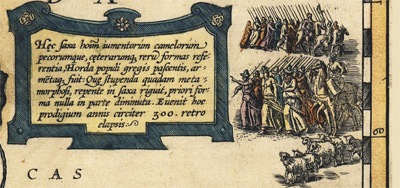 D A
Hęc saxa hoim̄ iumentorum camelorum
pecorumque, cęterarumq, rerū formas refe-
rentia, Horda populi gregis pascentis, ar-
mētaq, fuit: Quę stupenda quadam meta-
morphosi, repente in saxa riguit, priori for-
ma nulla in parte diminuta. Euenit hoc
prodigium annis circiter 300. retro
elapsis.
60
CAS